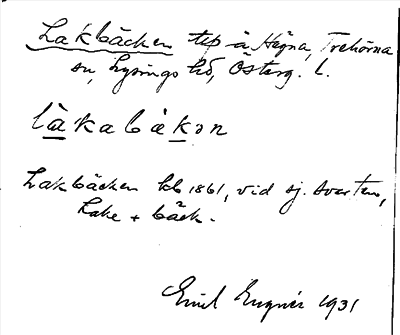 Lakbäcken tlp å Hägna, Trehörna
sn, Lysings hd, Österg. l.
làkabàkən
Lakbäcken kb 1861, vid sj. Svarten,
Lake + bäck.
Emil Engnér 1931